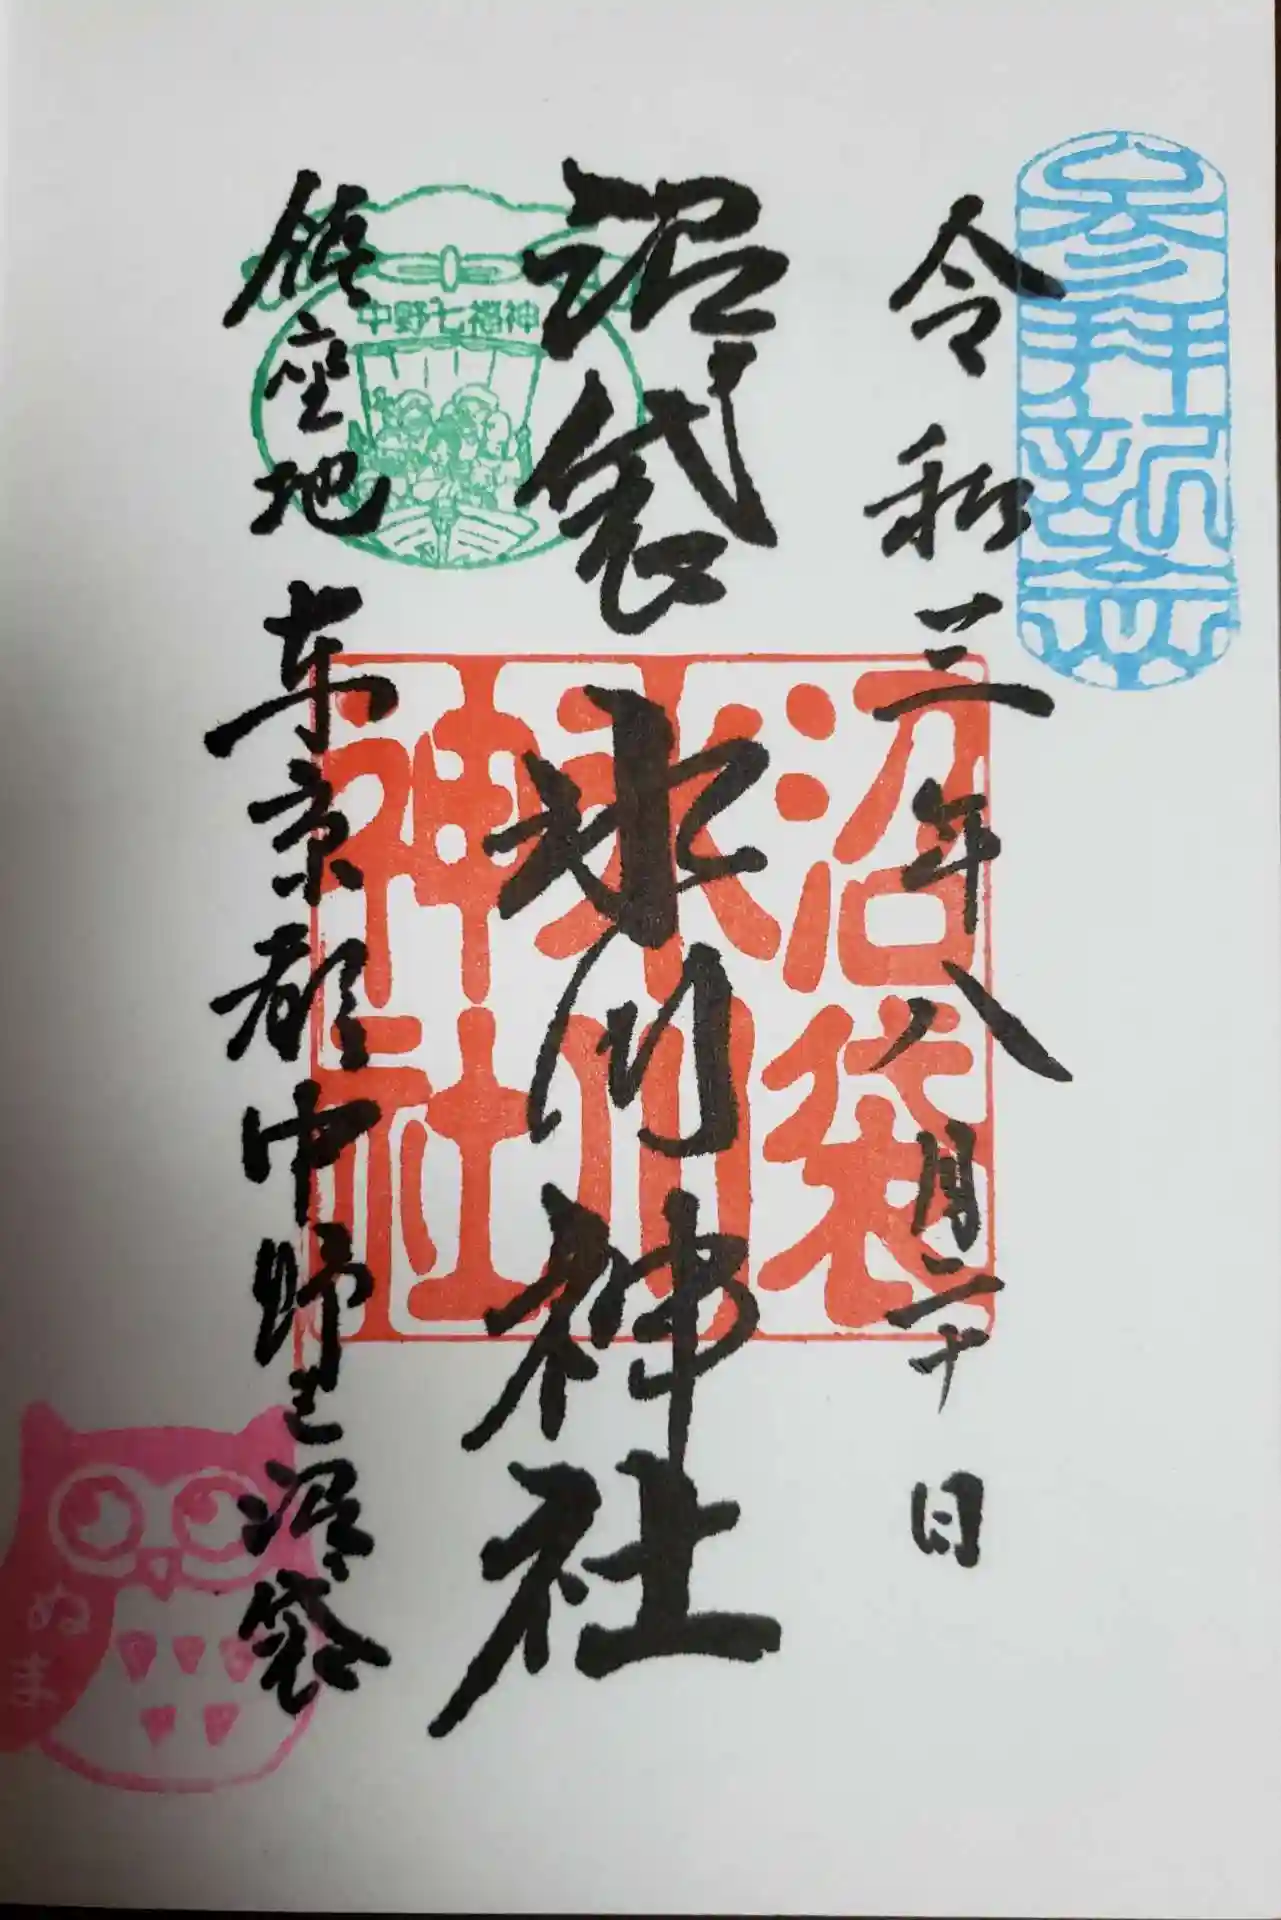 参拝記念
令和三年八月二十日
沼袋氷川神社
沼袋
氷川
神社
中野七福神
鎮座地 東京都中野区沼袋
ぬま